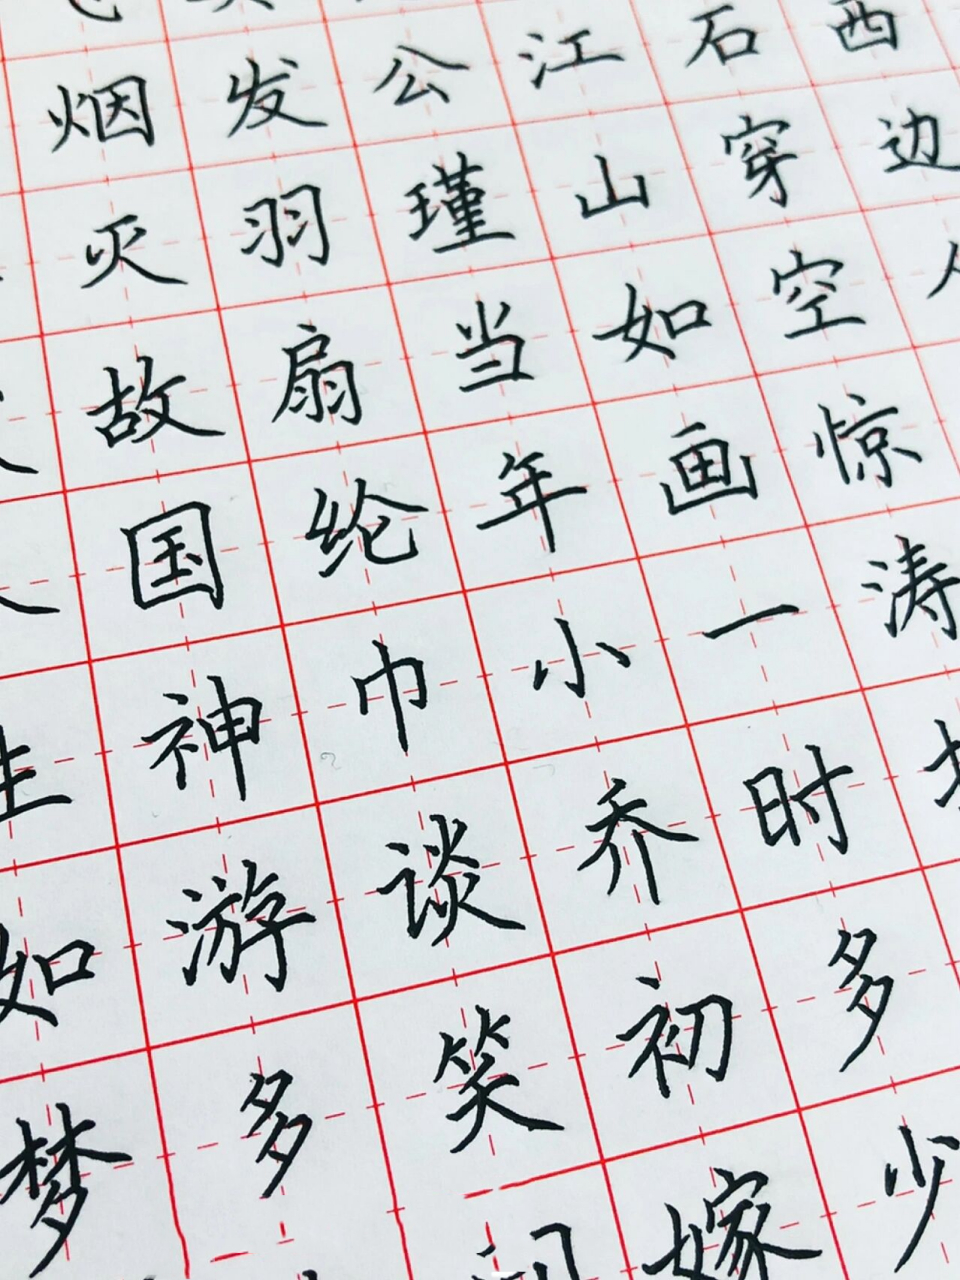 西边
石穿空惊涛
江山如画一时多少
公瑾当年小乔初嫁
发羽扇纶巾谈笑间
烟灭故国神游多
生如梦